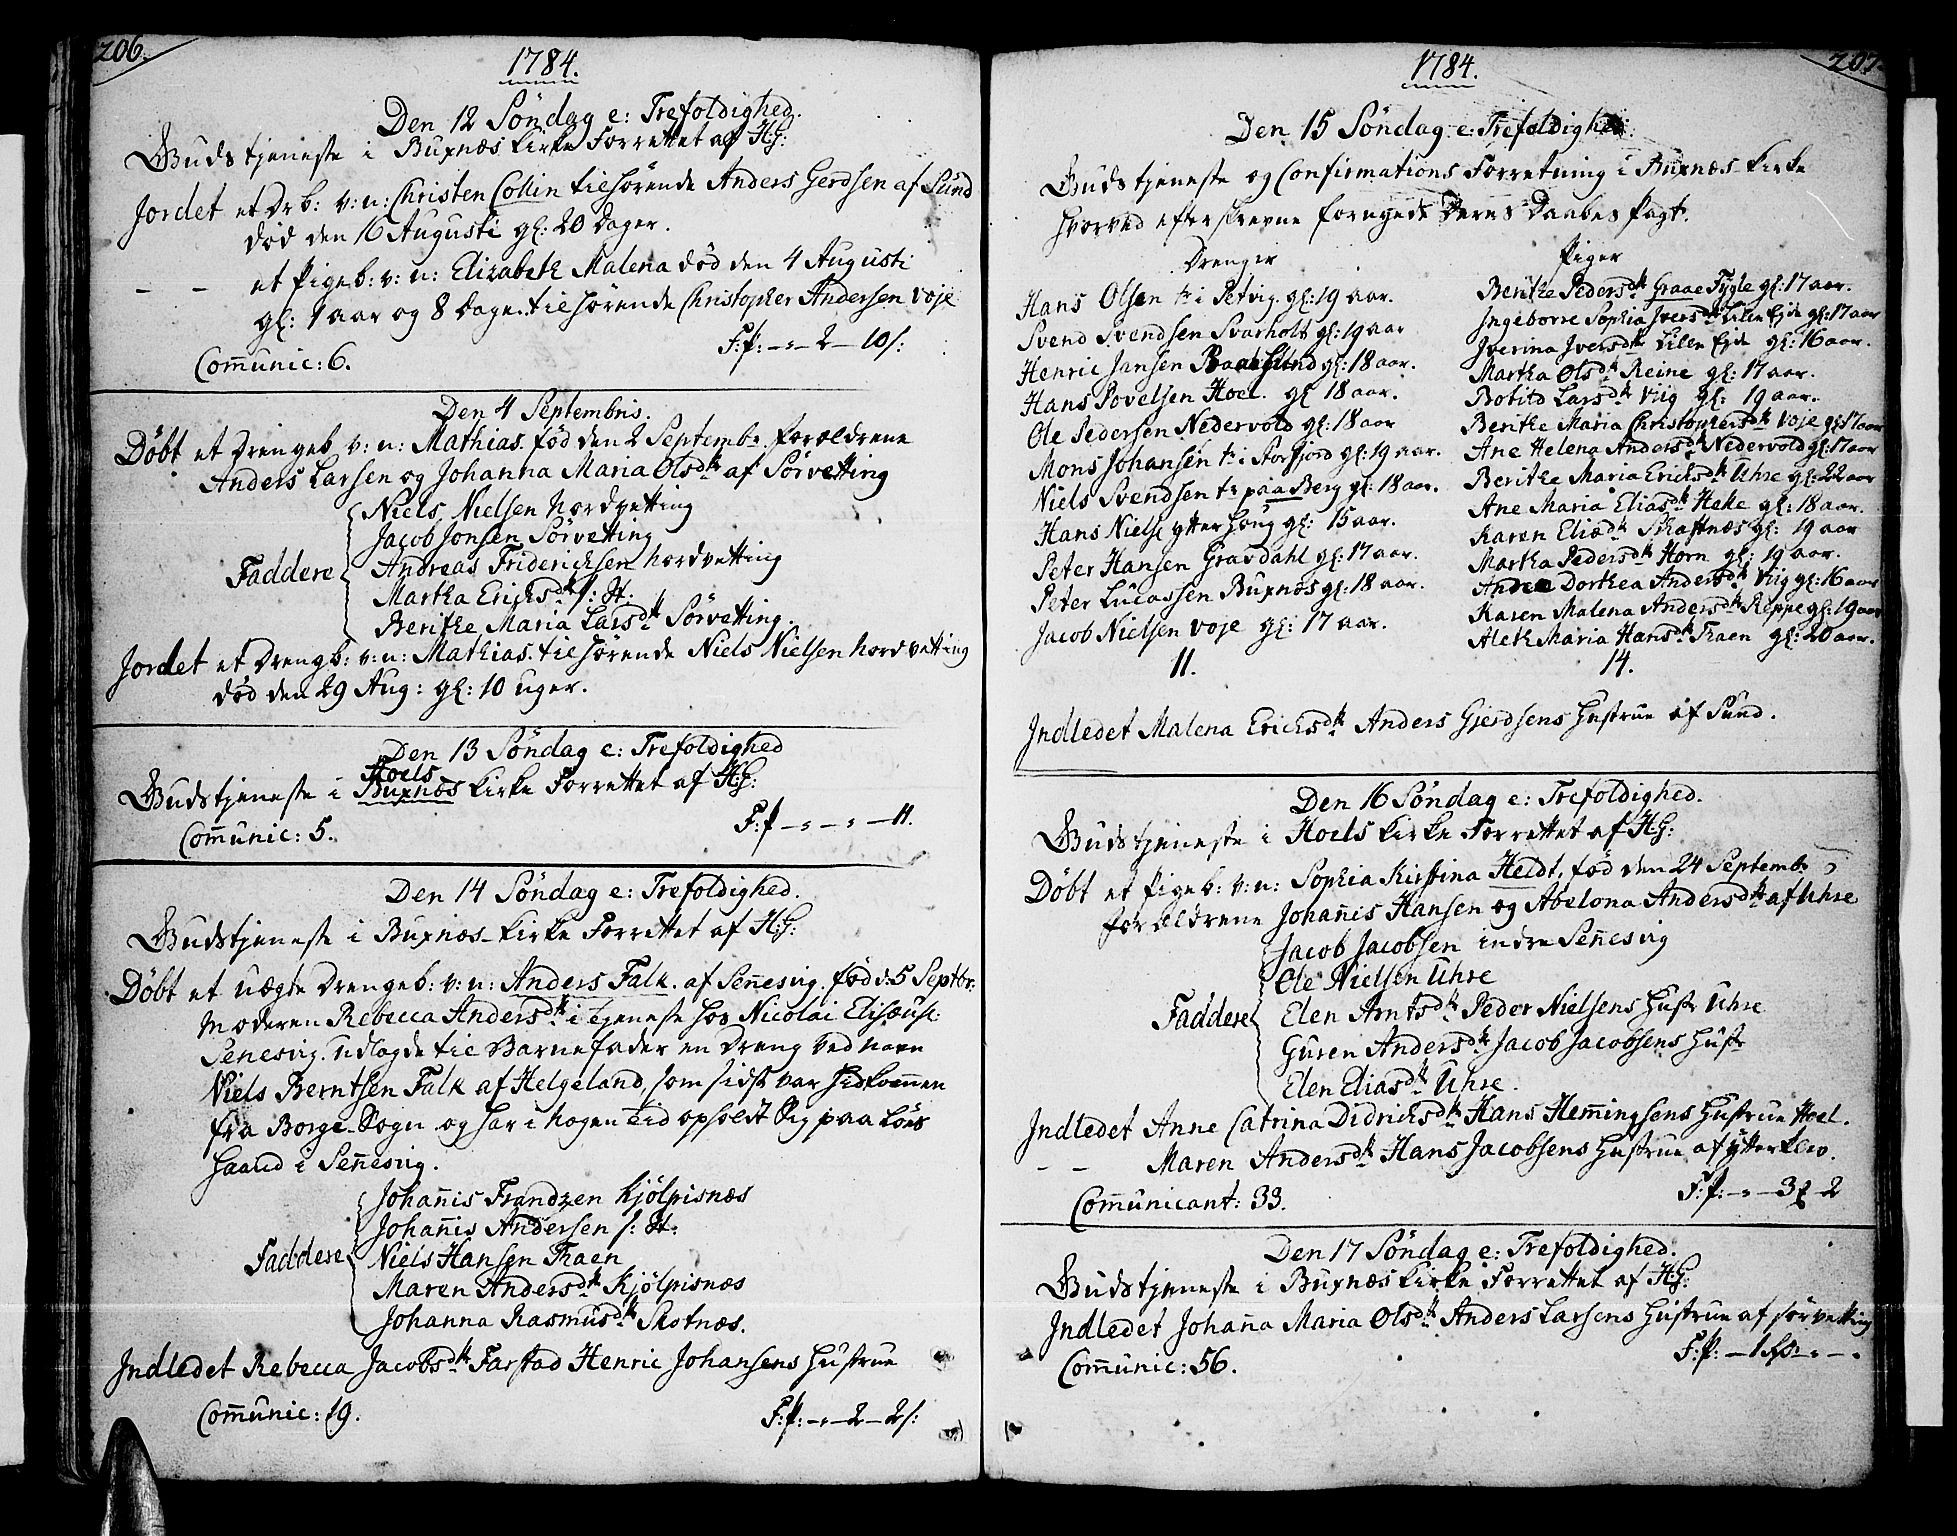 206.
1784.
Den 12 Söndag e: Trefoldighed.
Gudstjeneste i Buxnæs Kirke Forrettet af H:H:
Jordet et Drb: v: n: Christen Collin tilhörende Anders Gerdsen af Sund
död den 16 Augusti gl: 20 Dager.
– – et Pigeb: v: n: Elizabeth Malena död den 4 Augusti
gl: 1 aar og 8 Dage. tilhörende Christopher Andersen Voje
F:P: – " – 2 – 10 s:
Com̅unic: 6.
Den 4 Septembris.
Döbt et Drengeb v: n: Mathias. föd den 2 Septembr. forældrene
Anders Larsen og Johanna Maria Olsdtr af Sörvetting
Niels Nielsen Nordvetting
Jacob Jonsen Sörvetting
Faddere Andreas Fridericksen Nordvetting
Martha Ericksdtr s: St:
Berithe Maria Larsdtr Sörvetting.
Jordet et Drengb: v: n: Mathias. tilhörende Niels Nielsen Nordvetting
död den 29 Aug: gl: 10 uger.
Den 13 Söndag e: Trefoldighed
Hoels
Gudstjeneste i Buxnæs Kirke Forrettet af H:H:
F:P – " – " – 11.
Com̅unic: 5.
Den 14 Söndag e: Trefoldighed.
Gudstjeneste i Buxnæs Kirke Forrettet af H:H:
Döbt et uægte Drengeb: v: n: Anders Falk. af Sen̅esvig. föd d: 5 Septbr.
Moderen Rebecca Andersdtr i tjeneste hos Nicolai Elisæus:
Senesvig. udlagde til Barnefader en Dreng ved navn
Niels Berntsen Falk af Helgeland, som sidst var hidkom̅en
fra Borge Sogn og har i nogen Tid opholdt Sig paa Löes
haand i Sen̅esvig.
Johan̅is Frandzen Kjölpisnæs
Johan̅is Andersen s: St:
Faddere Niels Hansen Traen
Maren Andersdtr Kjölpisnæs
Johanna Rasmusdtr Skotnæs.
Indledet Rebecca Jacobsdtr Farstad Henric Johansens Hustrue
Com̅unic: 19.
F:P: – " – 2 – 2 s:
207.
1784.
Den 15 Söndag e: Trefoldighed:
Gudstjeneste og Confirmations Forretning i Buxnæs Kirke
hvorved efterskrevne fornyede Deres Daabes Pagt.
Drenger
Hans Olsen tr i Petvig. gl: 19 aar.
Svend Svendsen Svarholt gl: 19 aar
Henric Jansen Baaslund gl: 18 aar.
Hans Povelsen Hoel. gl 18 aar.
Ole Pedersen Nedervold gl: 18 aar
Mons Johansen tr i Storfjord gl: 19 aar.
Niels Svendsen tr paa Berg gl: 18 aar.
Hans Niels: ytter Houg gl: 15 aar.
Peter Hansen Gravdahl gl: 17 aar.
Peter Lucassen Buxnæs gl: 18 aar.
Jacob Nielsen Voje gl: 17 aar.
11.
Piger
Berithe Pedersdtr Graae Fygle gl: 17 aar.
Ingeborre Sophia Iversdtr Lille Eide gl: 17 aar
Iverina Iversdtr Lille Eide gl: 16 aar.
Martha Olsdtr Reine gl: 17 aar.
Botild Larsdtr Viig gl: 19 aar.
Berithe Maria Christophersdtr Voje gl: 17 aar
Ane Helena Andersdtr Nedervold gl: 17 aar
Berithe Maria Ericksdtr Uhre gl: 22 aar
Ane Maria Eliasdtr Hetle gl: 18 aar.
Karen Eliædtr Skaftnæs gl: 19 aar
Martha Pedersdtr Horn gl: 19 aar.
Andrea Dorthea Andersdtr Viig gl: 16 aar
Karen Malena Andersdtr Reppe gl: 19 aar
Aleth Maria Hansdtr Traen gl: 20 aar.
14.
Indledet Malena Ericksdtr Anders Gjerdsens Hustrue af Sund.
Den 16 Söndag e: Trefoldighed.
Gudstjeneste i Hoels Kirke Forrettet af HH:
Döbt et Pigeb: v: n: Sophia Kirstina Heldt, föd den 24 Septembr
forældrene Johan̅is Hansen og Abelona Andersdtr af Uhre
Jacob Jacobsen indre Sen̅esvig
Ole Nielsen Uhre
Faddere Elen Arntsdtr Peder Nielsens Hustr Uhre
Guren Andersdtr Jacob Jacobsens Hustr
Elen Eliasdtr Uhre.
Indledet Anne Catrina Didricksdtr Hans Hem̅ingsens Hustrue Hoel.
– – Maren Andersdtr Hans Jacobsens Hustrue af ytterklev.
F:P: – " – 3 – 2
Com̅unicant: 33.
Den 17 Söndag e: Trefoldighed.
Gudstjeneste i Buxnæs Kirke Forrettet af HH:
Indledet Johan̅a Maria Olsdtr Anders Larsens Hustrue af Sörvetting
F:P: – 1 – " – "
Com̅unic: 56.